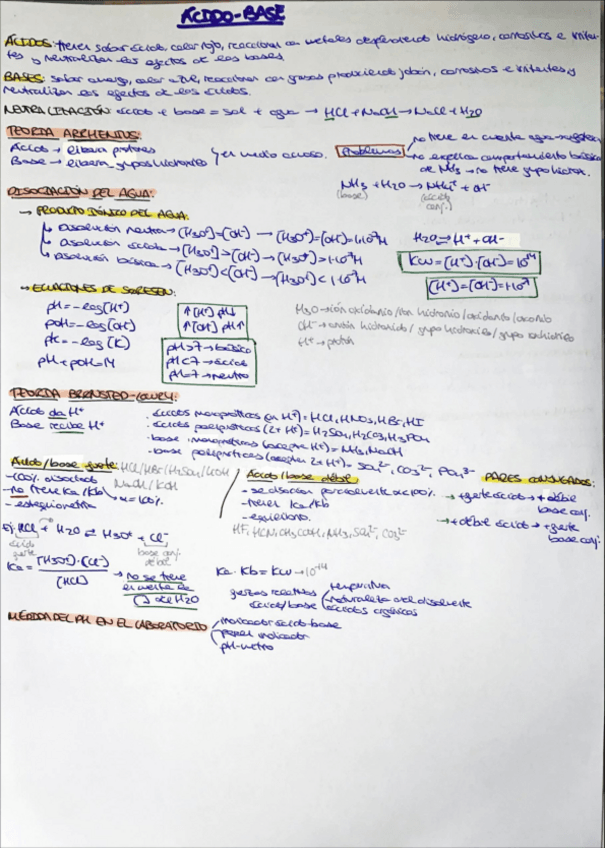 ÁCIDO-BASE
ÁCIDOS: tienen sabor ácido, color rojo, reaccionan con metales desprendiendo hidrógeno, corrosivos e irritan-
tes y neutralizan los efectos de las bases.
BASES: sabor amargo, color azul, reaccionan con grasas produciendo jabón, corrosivos e irritantes y
neutralizan los efectos de los ácidos.
NEUTRALIZACIÓN: ácido + base = sal + agua → HCl + NaOH → NaCl + H2O
TEORIA ARRHENIUS:
Ácido → libera protones
Base → libera grupos hidroxilo
y en medio acuoso.
Problemas
no tiene en cuenta agua
no explica comportamiento básico
de NH3 → no tiene grupo hidrox.
NH3 + H2O → NH4+ + OH-
(base) (ácido conj.)
DISOCIACIÓN DEL AGUA:
→ PRODUCTO IÓNICO DEL AGUA:
disolución neutra → [H3O+]=[OH-] → [H3O+]=[OH-]=1·10^-7 M
disolución ácida → [H3O+]>[OH-] → [H3O+]>1·10^-7 M
disolución básica → [H3O+]<[OH-] → [H3O+]<1·10^-7 M
H2O ⇌ H+ + OH-
Kw=[H+]·[OH-]=10^-14
[H+]=[OH-]=1·10^-7
→ ECUACIONES DE SORENSEN:
pH=-log[H+]
pOH=-log[OH-]
pK=-log[K]
pH+pOH=14
↑[H+] pH↓
↑[OH-] pH↑
pH>7 → básico
pH<7 → ácido
pH=7 → neutro
H3O → ión oxidanio/ion hidronio/oxidanio/
OH- → anión hidróxido/grupo hidroxilo/grupo
H+ → protón
TEORIA BRÖNSTED-LOWRY:
Ácido da H+
Base recibe H+
· ácidos monopróticos (un H+)=HCl, HNO3, HBr, HI
· ácidos polipróticos (2+ H+)=H2SO4, H2CO3, H3PO4
· base monopróticas (acepta H+)=NH3, NaOH
· base polipróticas (aceptan 2+ H+)=SO4^2-, CO3^2-, PO4^3-
Ácido/base fuerte: HCl/HBr/H2SO4/LiOH
NaOH/KOH
-100% disociado
-no tiene Ka/Kb
-estequiometría
α=100%
Ácido/base débil
-se disocian parcialmente
-tienen Ka/Kb
-equilibrio.
HF, HCN, CH3COOH, NH3, SO4^2-, CO3^2-
PARES CONJUGADOS:
→ +fuerte ácido → +débil
base conj.
→ +débil ácido → +fuerte
base conj.
Ej: HCl + H2O ⇌ H3O+ + Cl-
ácido fuerte
base conj. débil
Ka=[H3O+]·[Cl-]/[HCl]
→ no se tiene
en cuenta la
[ ] del H2O
Ka·Kb=Kw → 10^-14
fuerzas relativas
ácido/base
temperatura
naturaleza del disolvente
ácidos orgánicos
MEDIDA DEL PH EN EL LABORATORIO
indicador ácido-base
papel indicador
pH-metro